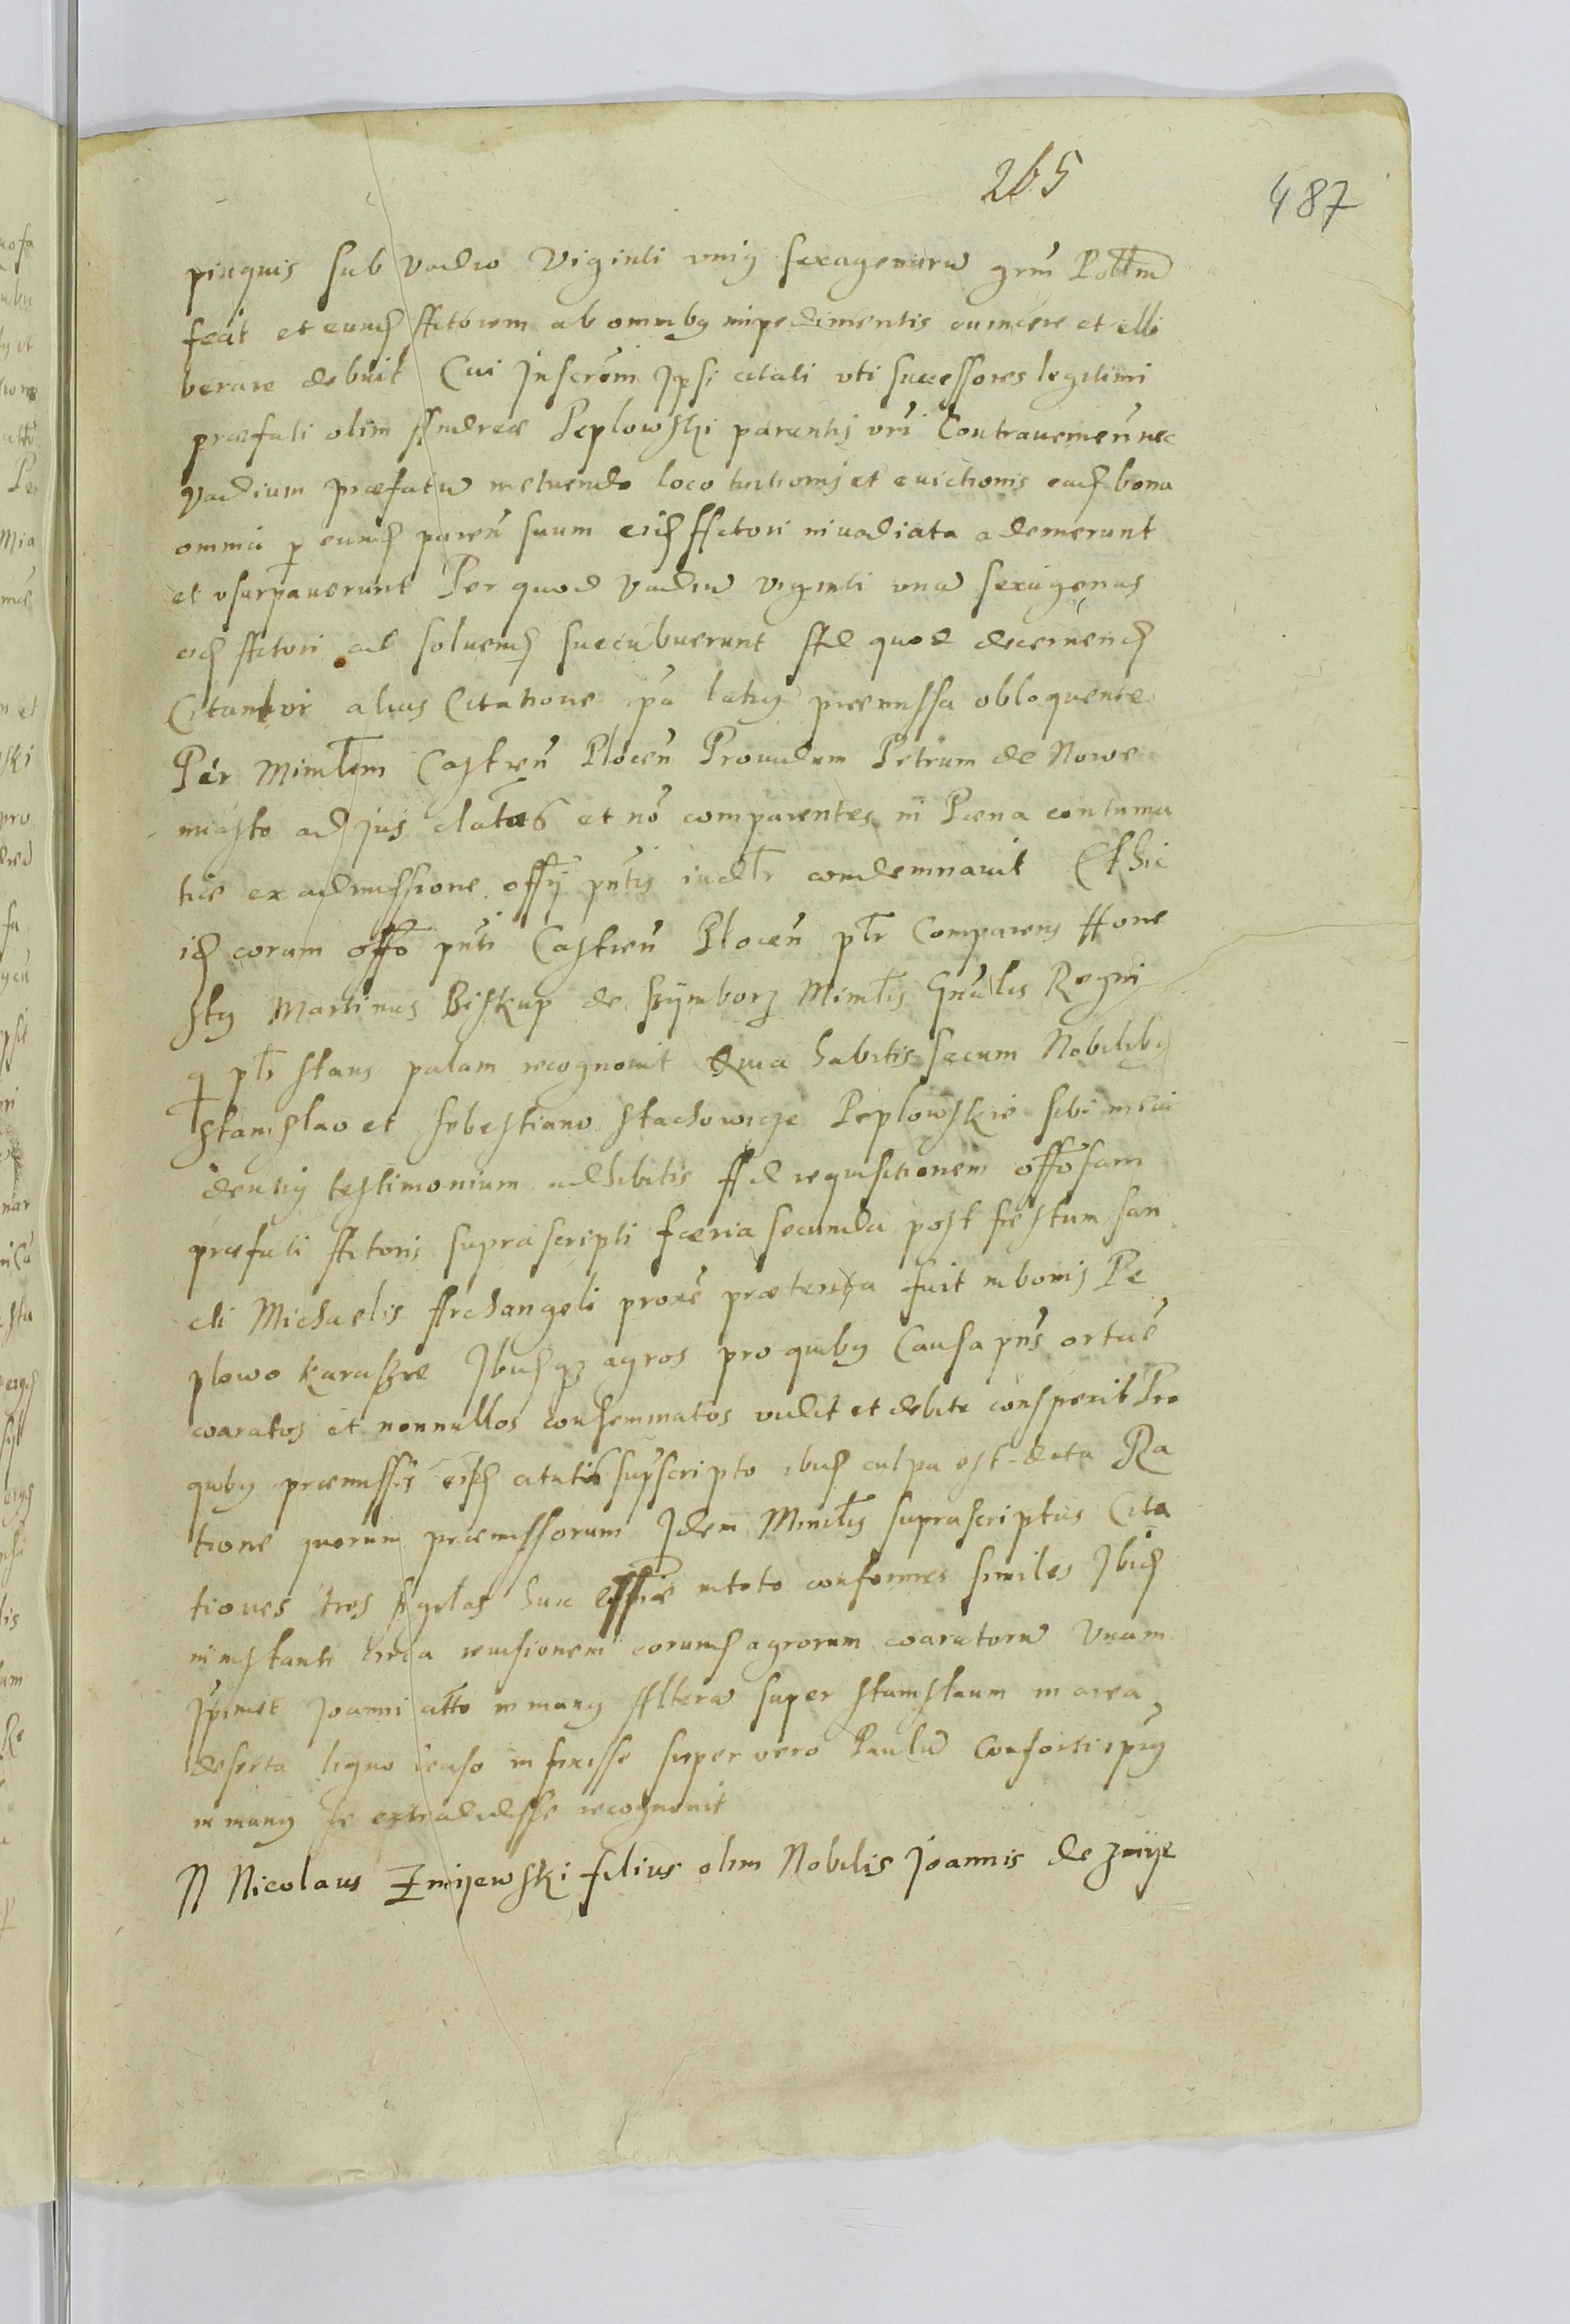 265
487
pinquis sub vadio Viginti unius sexagenarū grm̃
fecit et eund Actorem ab omnibus impedimentis euincere et elli
berare debuit Cui Inscrōni Ipsi citati vti successores legitimi
præfati olim Andreæ Peplowski parentis vri Contravenieñ nec
vadium præfatū metuendo loco tuitionis et euictionis ead bona
omnia p eund pareñ suum eid Actori inuadiata ademerunt
et vsurpauerunt Per quod vadiū viginti vna sexagenas
eid Actori ad soluend succubuerunt Ad quod decernend
Citantur alias Citatione ip̃a latius præmissa obloquente
Per Minlem Castreñ Ploceñ Prouidum Petrum de Nowe
miasto ad jus clatos et nō comparentes in Pœna contuma
tiæ ex admissione offij pntis iudlr condemnauit Et hic
id coram offō pnti Castreñ Ploceñ plr Comparens Hone
stus Martinus Biskup de Szymborz Minlis Gnalis Regni
q plr stans palam recognouit Quia habitis secum Nobilibus
Stanislao et Sebestiano Stachowicze Peplowskie sibi in eui
dentius testimonium adhibitis Ad requisitionem offosam
præfati Actoris suprascripti fæeria secunda post festum san
cti Michaelis Archangeli proxē præterita fuit in bonis Pe
plowo Karaszræ Ibidq agros pro quibus Causa pns ortū ē
coaratos et nonnullos conseminatos vidit et debite conspexit Pro
quibus præmissis eisd citatis supscripto ibid culpa est data Ra
tione quorum præmissorum Idem Minlis suprascriptus Cita
tiones tres huic in toto conformes similes Ibid
in instanti circa reuisionem eorund agrorum coaratorū Vnam
Ipimet Joanni in manus Alterā super Stanislaum in area
deserta ligno infixisse super vero Paulū Consorti ipius
in manus se extradidisse recognouit
N Nicolaus Zmijewski filius olim Nobilis Joannis de Zmije